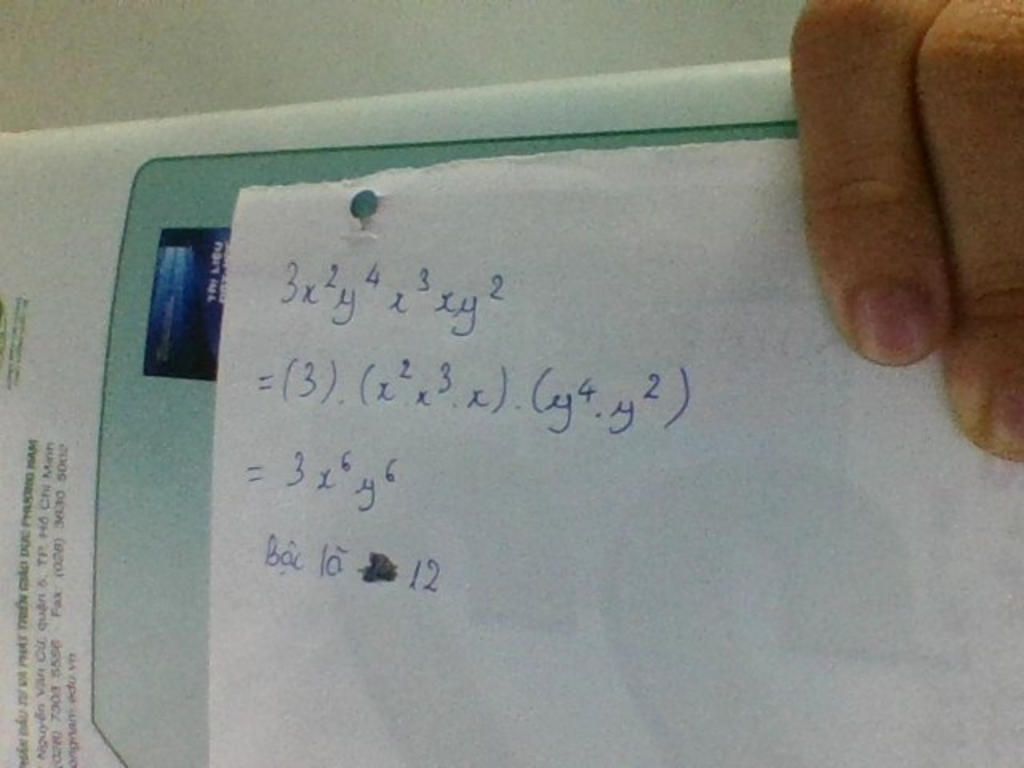 3x²y⁴x³xy²
=(3).(x²x³.x).(y⁴.y²)
= 3x⁶y⁶
Bậc là 12
TÀI LIỆU
PHẦN ĐẦU TƯ VÀ PHÁT TRIỂN GIÁO DỤC PHƯƠNG NAM
Nguyễn Văn Cừ, quận 5, TP. Hồ Chí Minh
(028) 7303 5556 Fax: (028) 3830 5002